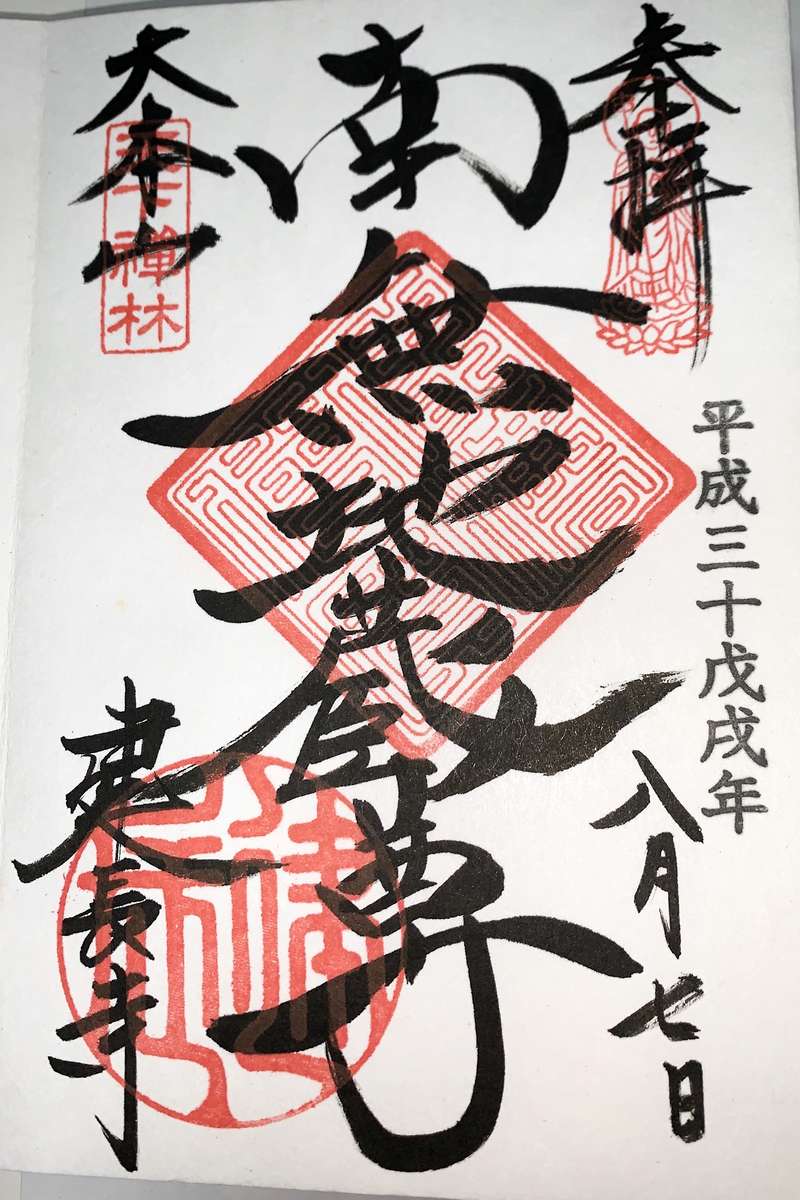 奉拝
平成三十戊戌年
八月七日
南無地蔵尊
大本山
天下禅林
建長寺